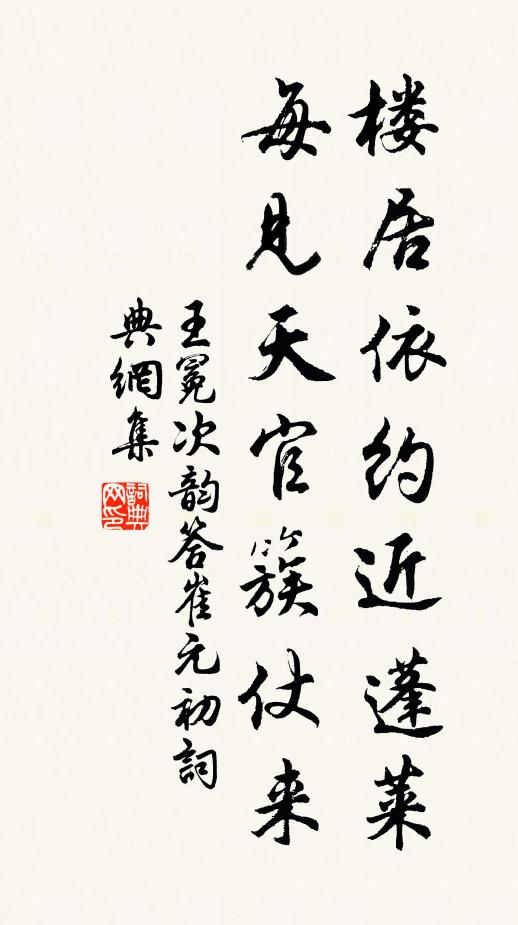 楼居依约近蓬莱
每见天官簇仗来
王冕次韵答崔元初詞
典網集
詞典网印